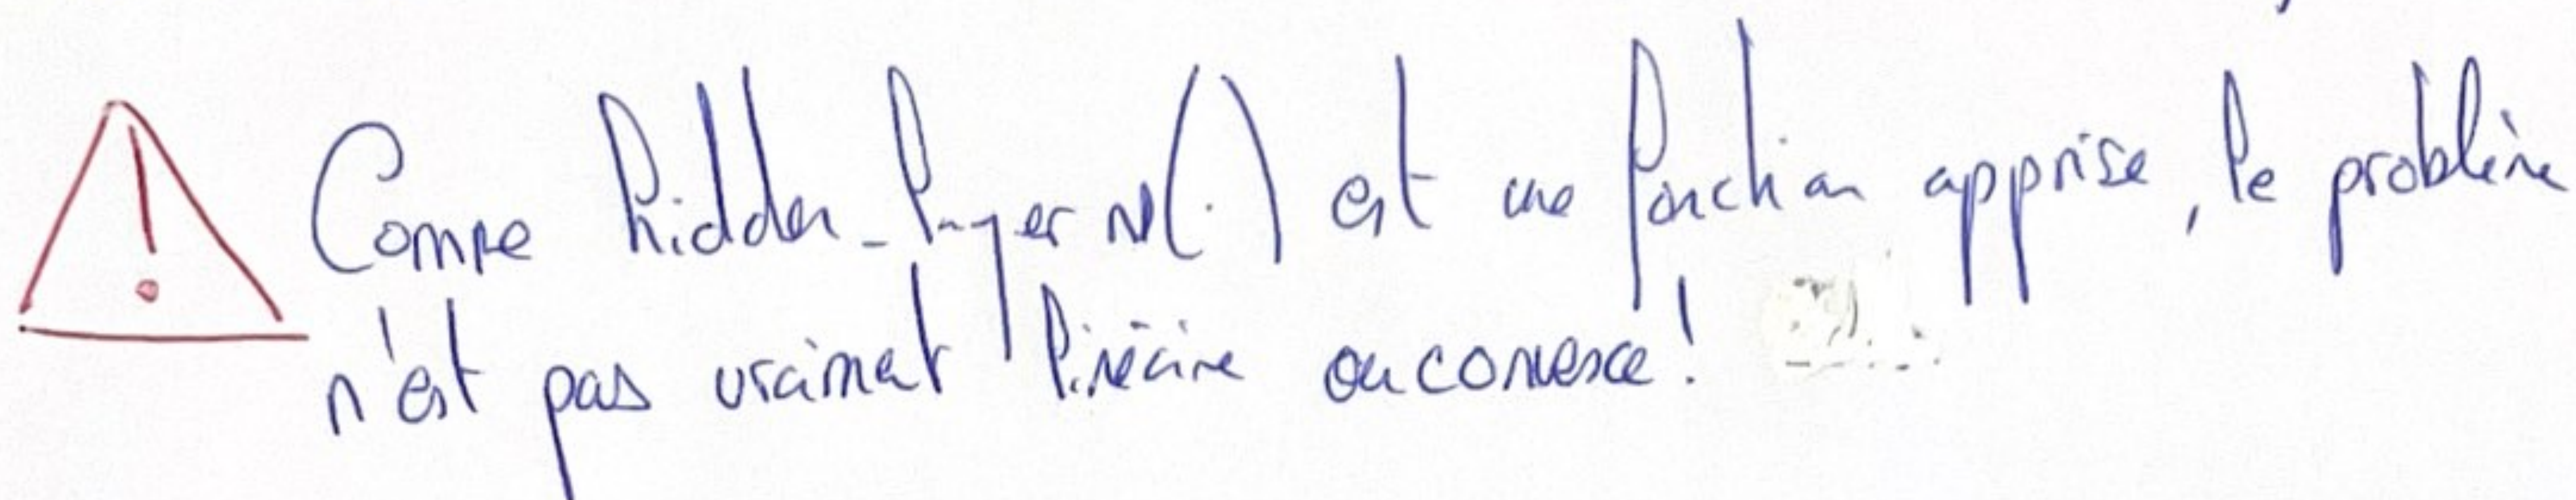 Comme hidden_layer nl(.) est une fonction apprise, le problème
n'est pas vraiment linéaire ou convexe!